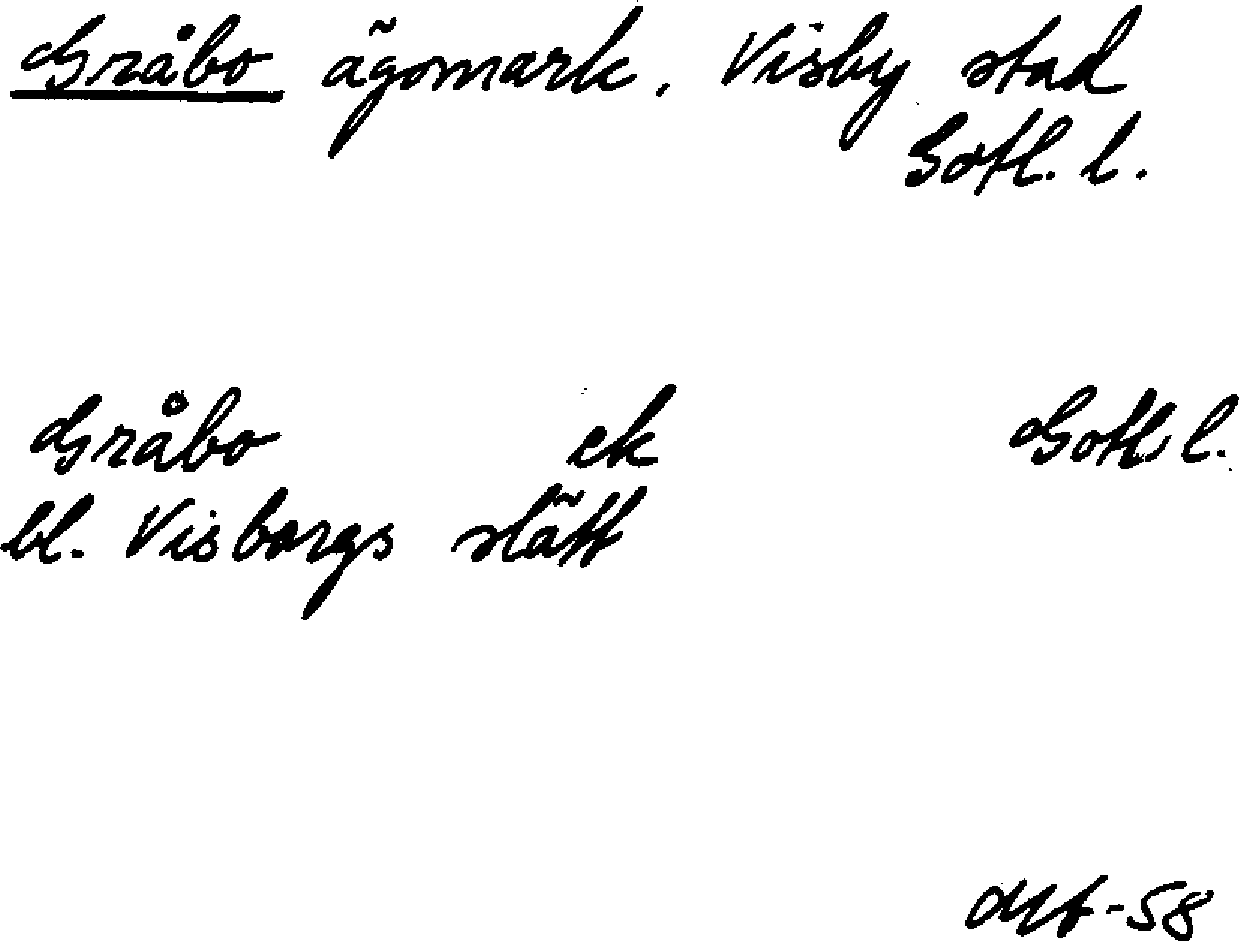 Gråbo ägomark, Visby stad
Gotl. l.
Gråbo ek Gotl l.
bl. Visborgs slätt
-58